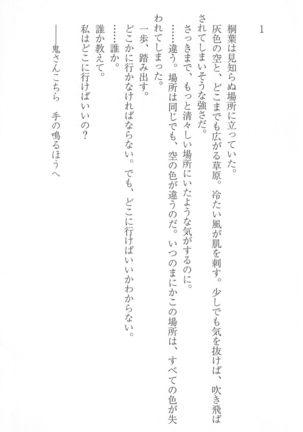 1
桐葉は見知らぬ場所に立っていた。
灰色の空と、どこまでも広がる草原。冷たい風が肌を刺す。少しでも気を抜けば、吹き飛ば
されてしまいそうな強さだ。
さっきまで、もっと清々しい場所にいたような気がするのに。
……違う。場所は同じでも、空の色が違うのだ。いつのまにかこの場所は、すべての色が失
われてしまった。
一歩、踏み出す。
どこかに行かなければならない。でも、どこに行けばいいかわからない。
……誰か。
誰か教えて。
私はどこに行けばいいの?
――鬼さんこちら 手の鳴るほうへ